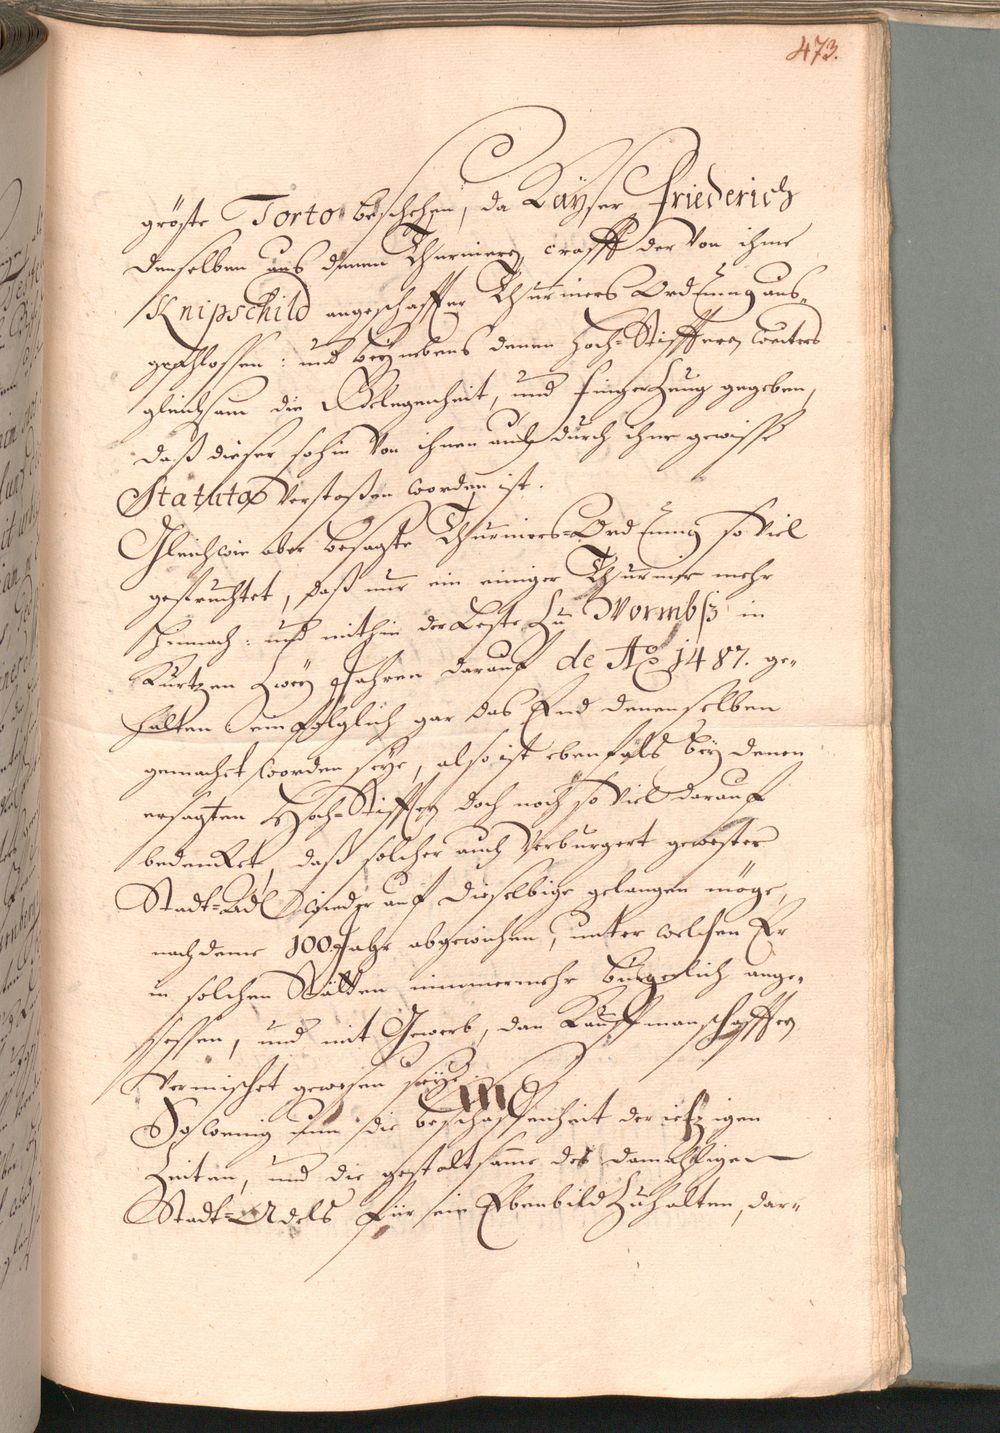 473.
gröste Torto beschehen, da Kaÿser Friederich
denselben aus denen Thurnieren crafft der von ihme
Knipschild angeschaffter Thurniers Ordnung aus-
geschlossen: und beÿnebens denen Hoch-Stifftern weiters
gleichsam die Gelegenheit, und fingerzeug gegeben,
daß dieser sohin von ihnen auch durch ihre gewisse
Statuta verstoßen worden ist.
Gleichwie aber besagte Thurniers-Ordnung so viel
gefruchtet, daß nur ein einiger Thurnir mehr
hernach: und mithin der Leste zu Wormbß in
kurtzen zweÿ Jahren darauf de Aō 1487. ge-
halten: einfolglich gar das End denenselben
gemachet worden seÿe, also ist ebenfals beÿ denen
ersagten Hoch-Stifften doch noch so viel darauf
bedenket, daß solcher auch verburgert gewester
Stadt-Adl wieder auf dieselbige gelangen möge,
nach deme 100 Jahr abgewichen, unter welchen Er
in solchen Stätten nimmermehr burgerlich ange-
sessen, und mit Gewerb, dan Kauffmanschafften
vermischet gewesen seÿe.
So wenig nun die beschaffenheit der ietzigen
Zeiten, und die gestaltsame des damahligen
Stadt-Adels für ein Ebenbild zuhalten, dar-